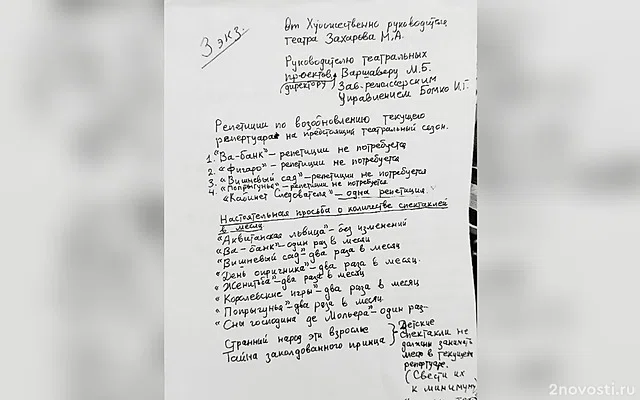 3 экз.
От Художественно руководителя
театра Захарова М,А.
Руководителю театральных
проектов, Варшаверу М.Б.
(директору) Зав. режиссерским
Управлением Бомко И.Г.
Репетиции по возобновлению текущего
репертуара на предстоящий театральный сезон.
1. "Ва-банк" – репетиции не потребуется
2. "Фигаро" – репетиции не потребуется
3. "Вишневый сад" – репетиции не потребуется
4. "Попрыгунья" – репетиции не потребуется
"Кабинет Следователя" – одна репетиция.
Настоятельная просьба о количестве спектаклей
в месяц
"Аквитанская львица" – без изменений
"Ва-банк" – один раз в месяц
"Вишневый сад" – два раза в месяц
"День опричника" – два раза в месяц.
"Женитьба" – два раза в месяц
"Королевские игры" – два раза в месяц
"Попрыгунья" – два раза в месяц
"Сны господина де Мольера" – один раз –
Странный народ эти взрослые
Тайна заколдованного принца
} – Детские
спектакли не
должны занимать
место в текущем
репертуаре.
(Свести их
к минимуму
2novosti.ru